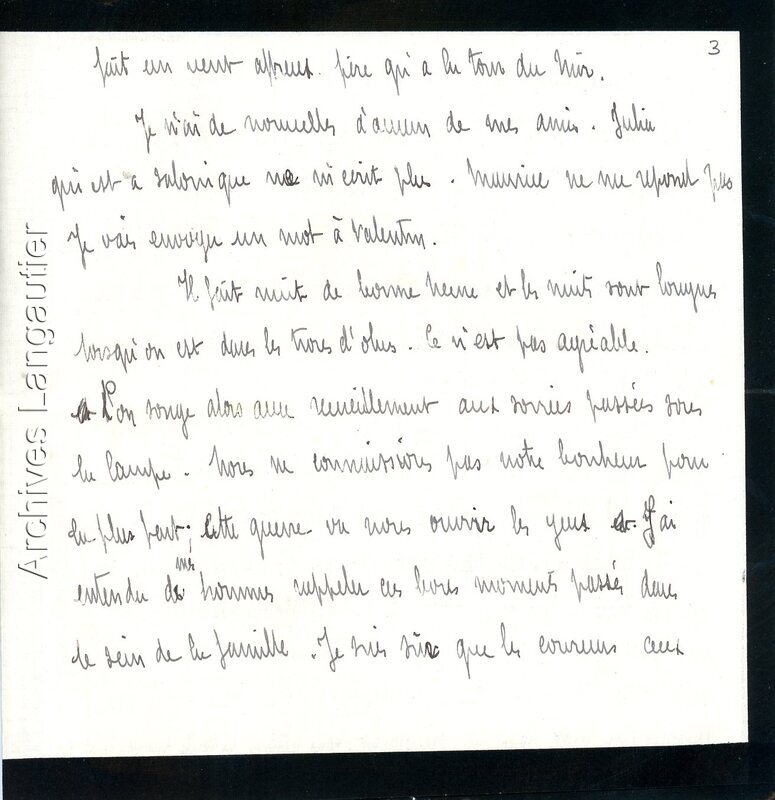 3
fait un vent affreux. pire qu'a la tour du Mir.
Je n'ai de nouvelles d'aucun de mes amis. Julia
qui est a salonique ne m'ecrit plus. Maurice ne me repond pas
Je vais envoyer un mot à Valentin.
Il fait nuit de bonne heure et les nuits sont longues
lorsqu'on est dans les trous d'obus. Ce n'est pas agréable.
L'on songe alors avec recueillement aux soirées passées sous
la lampe. Nous ne connaissions pas notre bonheur pour
la plus part; Cette guerre va nous ouvrir les yeux. J'ai
entendu mes hommes rappeler ces bons moments passés dans
le sein de la famille. Je suis sûr que les coureurs ceux
Archives Langautier